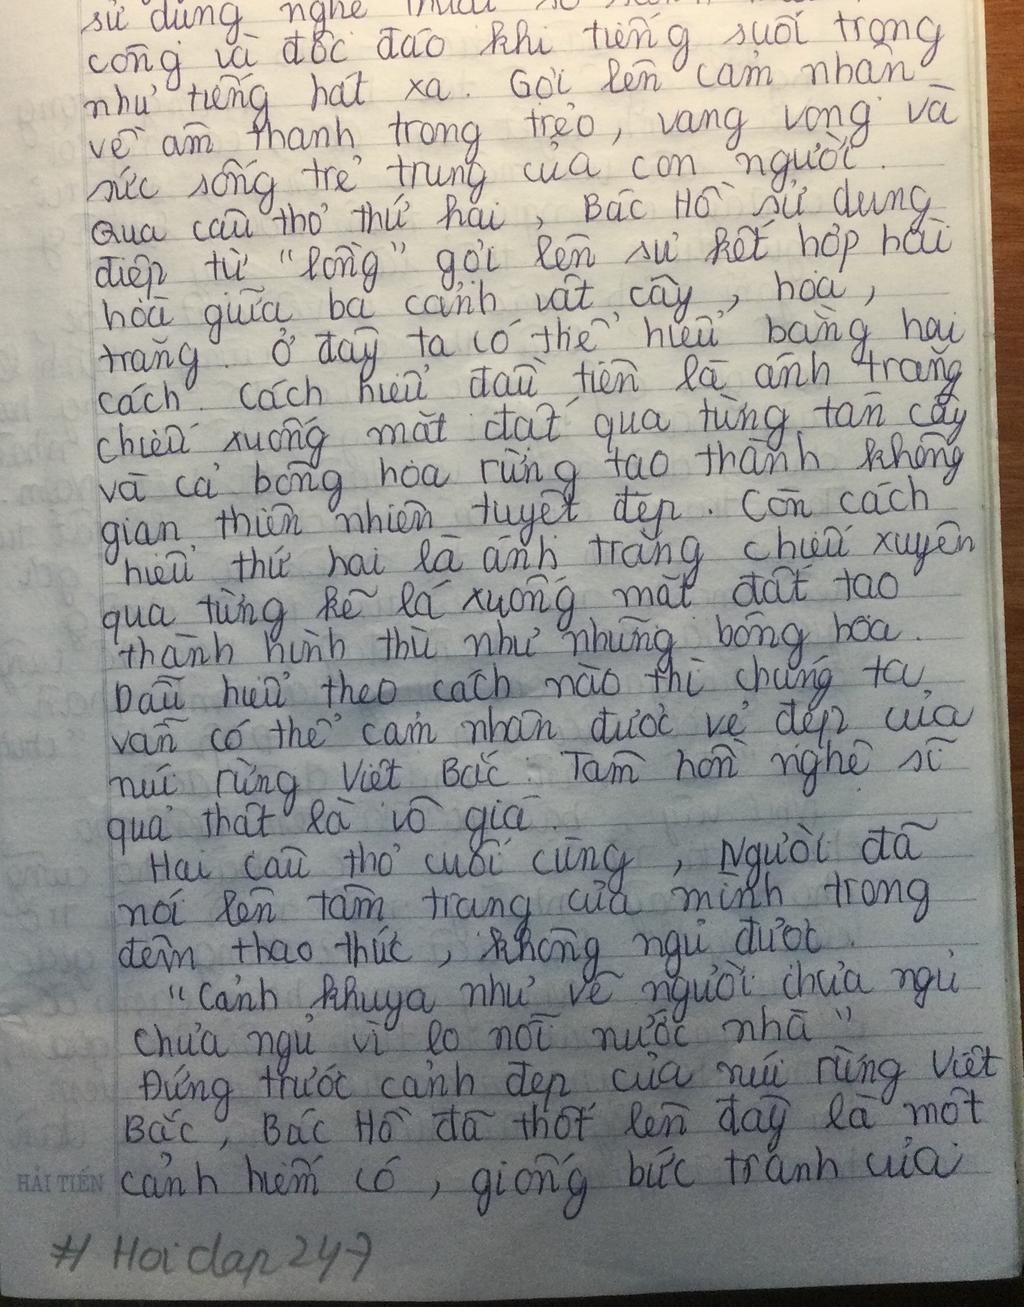 sử dụng nghệ thuật so
công và độc đáo khi tiếng suối trong
như tiếng hát xa. Gợi lên cảm nhận
về âm thanh trong trẻo, vang vọng và
sức sống trẻ trung của con người.
Qua câu thơ thứ hai, Bác Hồ sử dụng
điệp từ "lồng" gợi lên sự kết hợp hài
hòa giữa ba cảnh vật cây, hoa,
trăng. Ở đây ta có thể hiểu bằng hai
cách. Cách hiểu đầu tiên là ánh trăng
chiếu xuống mặt đất qua từng tán cây
và cả bông hoa rừng tạo thành không
gian thiên nhiên tuyệt đẹp. Còn cách
hiểu thứ hai là ánh trăng chiếu xuyên
qua từng kẽ lá xuống mặt đất tạo
thành hình thù như những bông hoa.
Dẫu hiểu theo cách nào thì chúng ta
vẫn có thể cảm nhận được vẻ đẹp của
núi rừng Việt Bắc. Tâm hồn nghệ sĩ
quả thật là vô giá.
Hai câu thơ cuối cùng, Người đã
nói lên tâm trạng của mình trong
đêm thao thức, không ngủ được.
"Cảnh khuya như vẽ người chưa ngủ
Chưa ngủ vì lo nỗi nước nhà"
Đứng trước cảnh đẹp của núi rừng Việt
Bắc, Bác Hồ đã thốt lên đây là một
cảnh hiếm có, giống bức tranh của
HẢI TIẾN
# Hoidap247